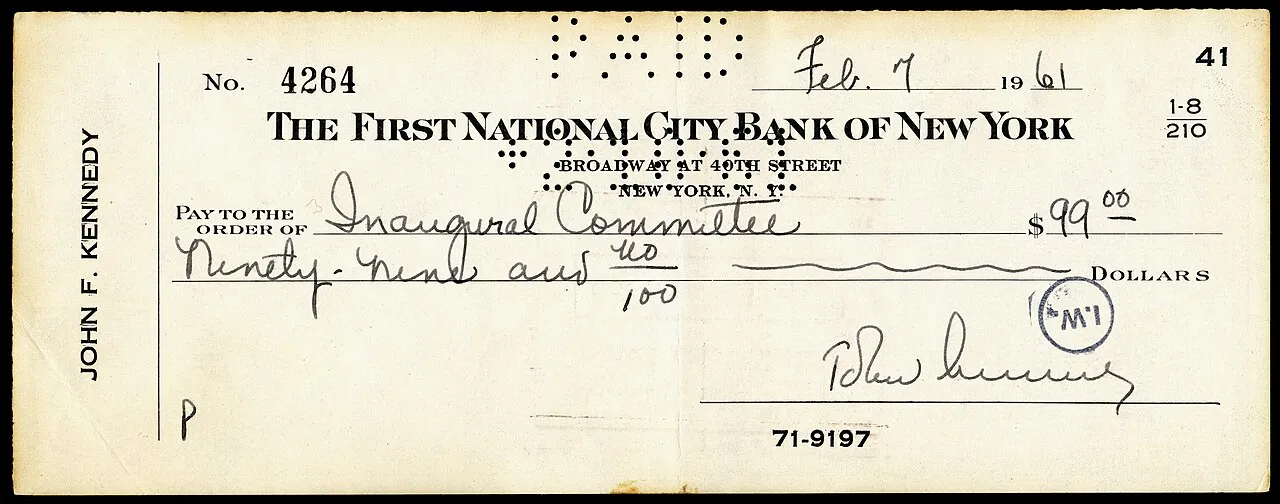 PAID
41
No. 4264
Feb. 7 1961
1-8
210
THE FIRST NATIONAL CITY BANK OF NEW YORK
BROADWAY AT 40TH STREET
NEW YORK, N. Y.
JOHN F. KENNEDY
PAY TO THE ORDER OF Inaugural Committee $99 00
Ninety-nine and no/100 DOLLARS
I.W.
John Kennedy
P
71-9197